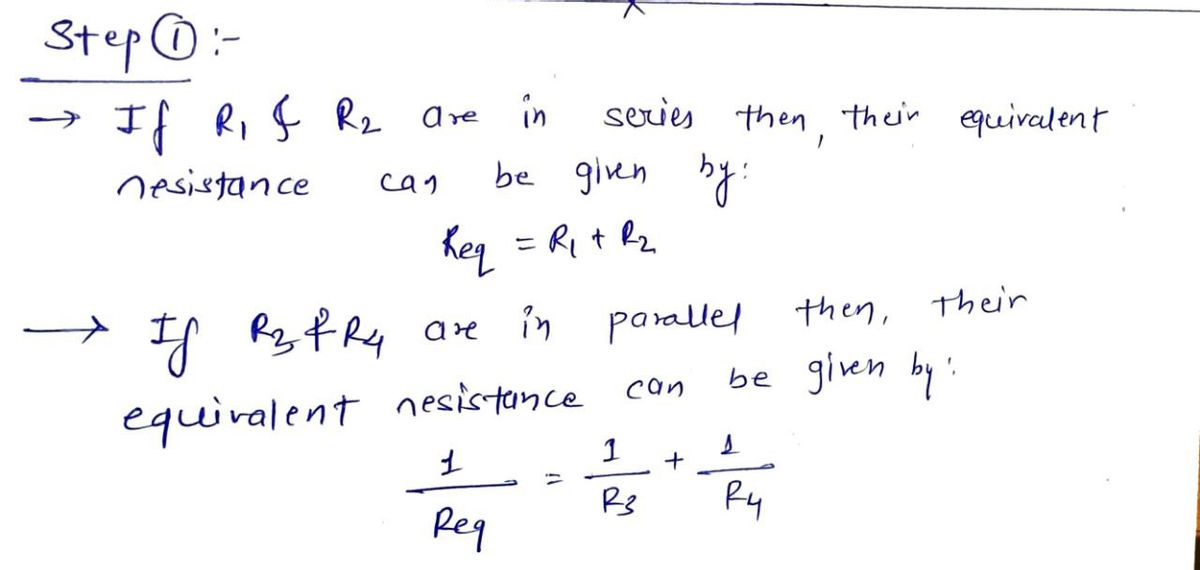 Step ① :-
→ If R₁ & R₂ are in series then, their equivalent
resistance can be given by:
Req = R₁ + R₂
→ If R₃ & R₄ are in parallel then, their
equivalent resistance can be given by:
1/Req = 1/R₃ + 1/R₄